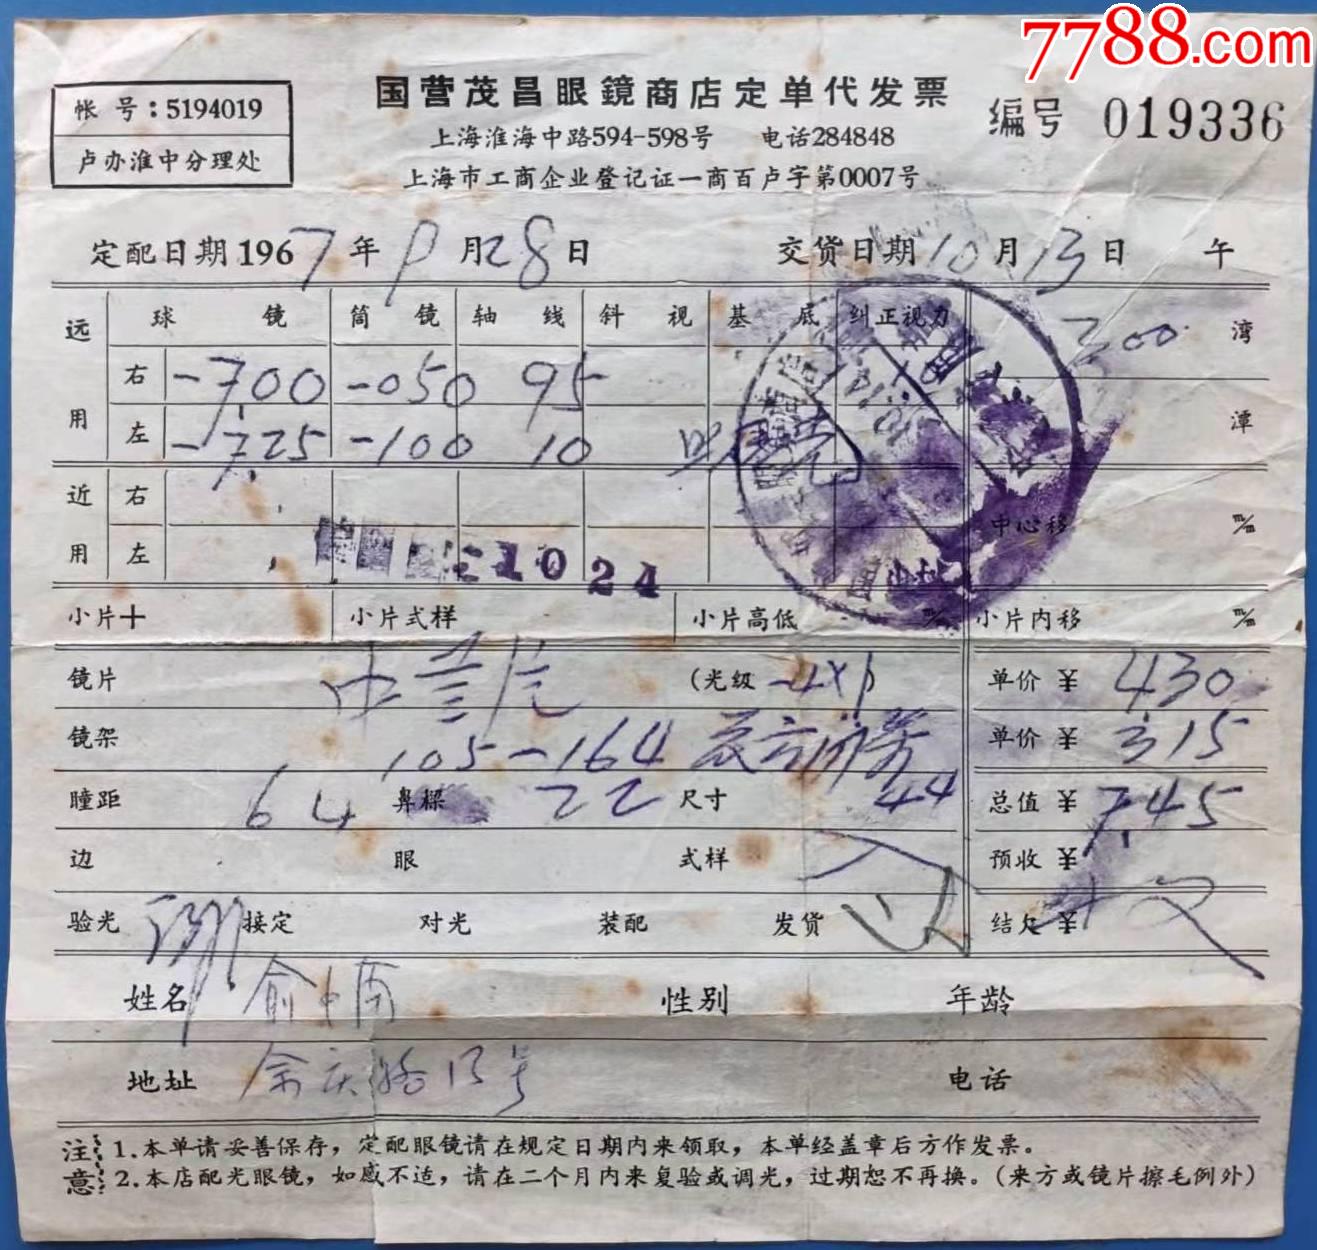 7788.com
国营茂昌眼镜商店定单代发票
帐 号：5194019
卢办淮中分理处
编号 019336
上海淮海中路594-598号 电话284848
上海市工商企业登记证一商百卢字第0007号
定配日期1967年9月28日 交货日期10月13日 午
远用 球镜 筒镜 轴线 斜视 基底 纠正视力 300 湾
右 -7.00 -050 95
左 -7.25 -100 10 潭
近用 右 中心移 m/m
左 1024
小片十 小片式样 小片高低 m/m 小片内移 m/m
镜片 (光级 单价 ¥ 430
镜架 105-164 单价 ¥ 315
瞳距 64 鼻樑 22 尺寸 44 总值 ¥ 7.45
边 眼 式样 预收 ¥
验光 接定 对光 装配 发货 结欠 ¥
姓名 性别 年龄
地址 余庆路13号 电话
注意 1.本单请妥善保存，定配眼镜请在规定日期内来领取，本单经盖章后方作发票。
2.本店配光眼镜，如感不适，请在二个月内来复验或调光，过期恕不再换。(来方或镜片擦毛例外)